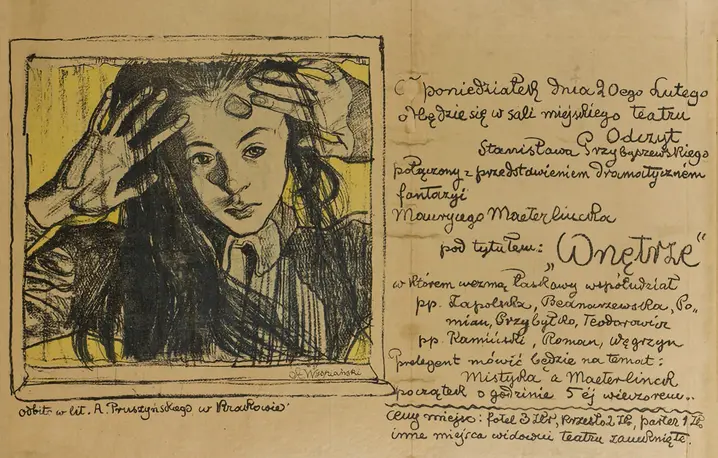 St Wyspiański
odbito w lit. A. Pruszyńskiego w Krakowie
W poniedziałek dnia 20ego Lutego
odbędzie się w sali miejskiego teatru
Odczyt
Stanisława Przybyszewskiego
połączony z przedstawieniem dramatycznem
fantazyi
Maurycego Maeterlincka
pod tytułem: „Wnętrze“
w którem wezmą łaskawy współudział
pp. Zapolska, Bednarzewska, Po„
mian, Przybyłko, Teodorowicz
pp. Kamiński, Roman, Węgrzyn
Prelegent mówić będzie na temat:
Mistyka a Maeterlinck
początek o godzinie 5ej wieczorem..
Ceny miejsc: fotel 3 Złr, krzesło 2 Zł, parter 1 Zł
inne miejsca widowni teatru zamknięte.